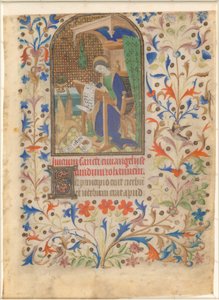 sancti euuangelii se
cundum iohannem
In principio erat verbu
et verbum erat apud